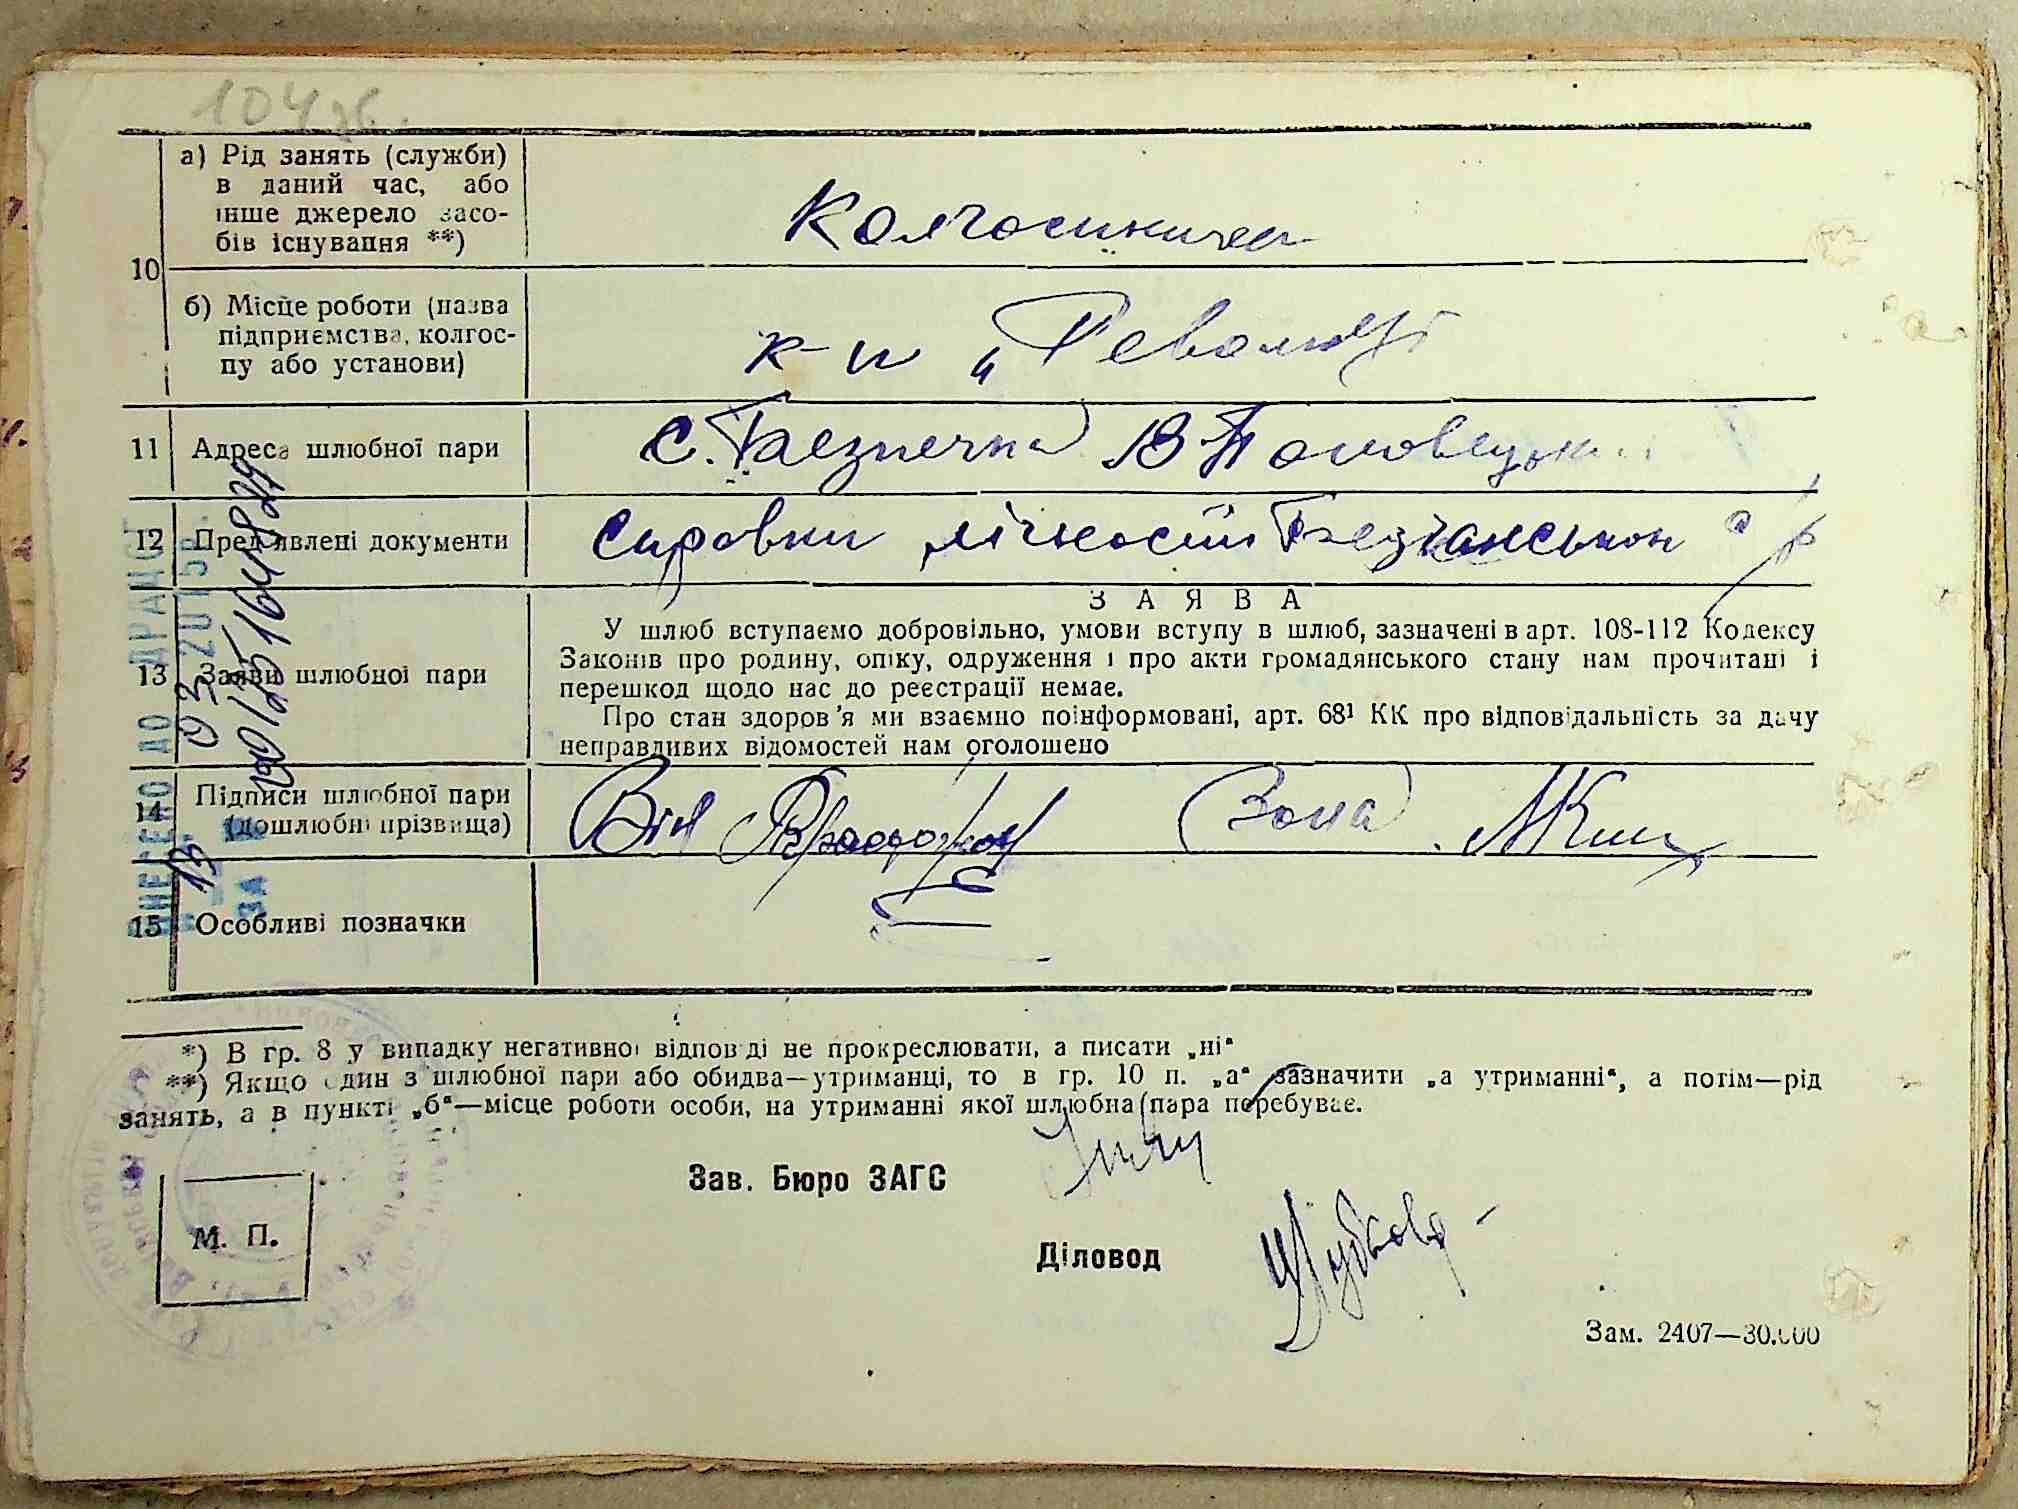 104
10
а) Рід занять (служби)
в даний час, або
інше джерело засо-
бів існування **)
Колгоспниця
б) Місце роботи (назва
підприємства, колгос-
пу або установи)
к-п „Революці
11
Адреса шлюбної пари
с. Безпечна В Половецьк
12
Пред'явлені документи
Справки
13
Заяви шлюбної пари
ЗАЯВА
У шлюб вступаємо добровільно, умови вступу в шлюб, зазначені в арт. 108-112 Кодексу
Законів про родину, опіку, одруження і про акти громадянського стану нам прочитані і
перешкод щодо нас до реєстрації немає.
Про стан здоров'я ми взаємно поінформовані, арт. 68¹ КК про відповідальність за дачу
неправдивих відомостей нам оголошено
14
Підписи шлюбної пари
(дошлюбні прізвища)
Він
Вона
15
Особливі позначки
ВНЕСЕНО ДО ДРАЦСГ
13 03 2015р.
ЗА №
*) В гр. 8 у випадку негативної відповіді не прокреслювати, а писати „ні“
**) Якщо один з шлюбної пари або обидва—утриманці, то в гр. 10 п. „а“ зазначити „а утриманні“, а потім—рід
занять, а в пункті „б“—місце роботи особи, на утриманні якої шлюбна пара перебуває.
Зав. Бюро ЗАГС
М. П.
Діловод
Зам. 2407—30.000